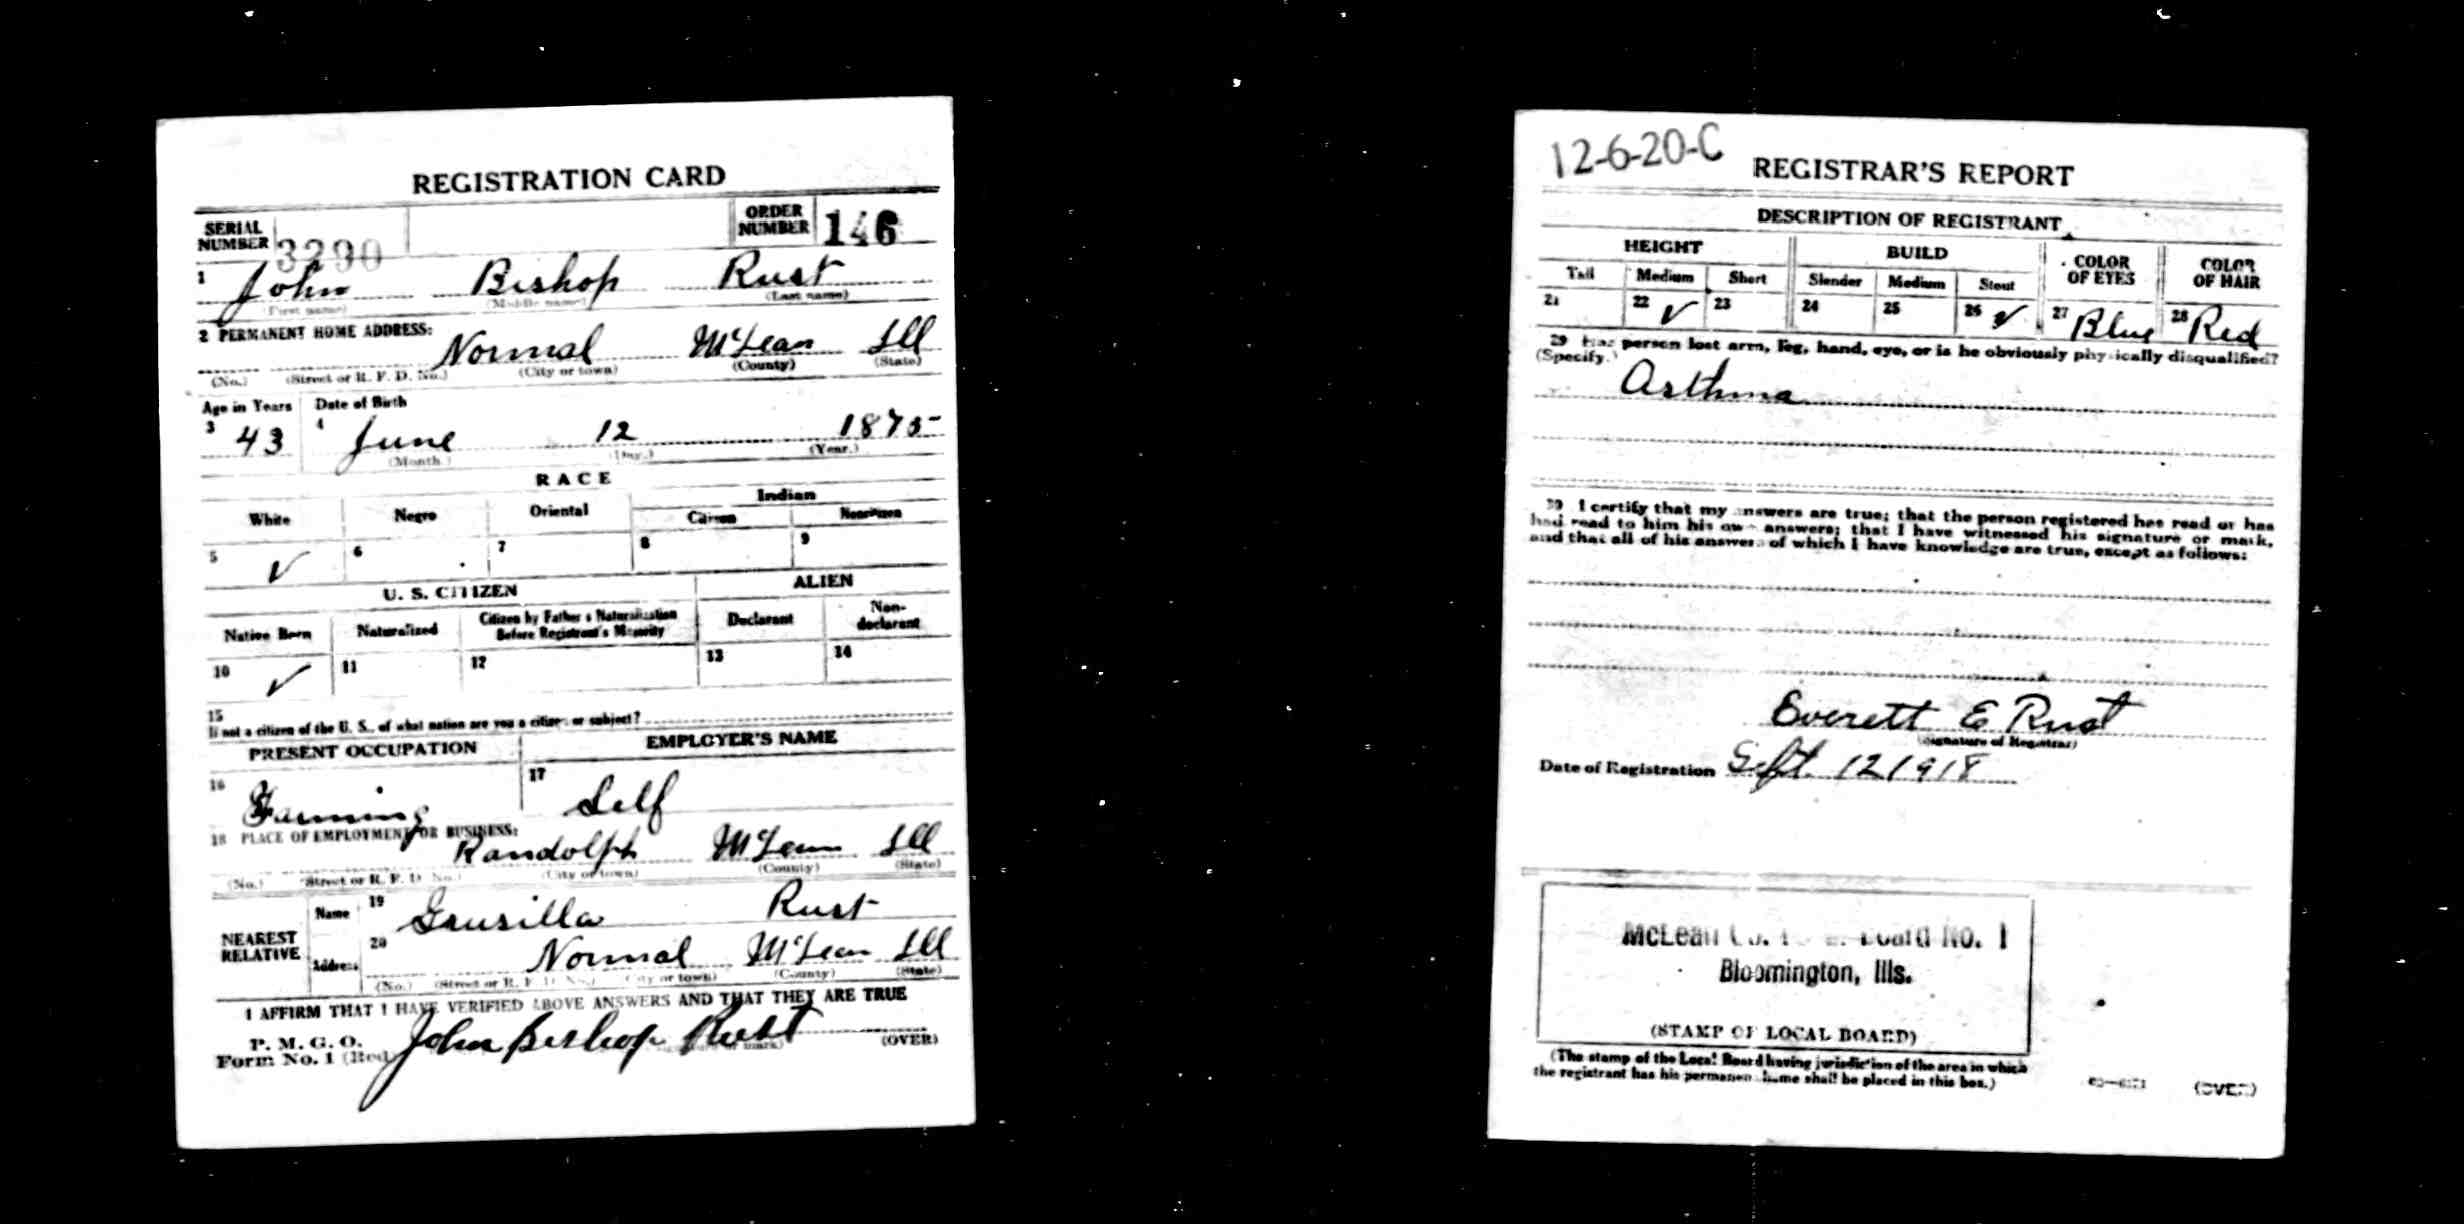 REGISTRATION CARD
SERIAL NUMBER 3290 ORDER NUMBER 146
1 John Bishop Rust
(First name) (Middle name) (Last name)
2 PERMANENT HOME ADDRESS:
Normal McLean Ill
(No.) (Street or R. F. D. No.) (City or town) (County) (State)
Age in Years Date of Birth
3 43 4 June 12 1875
(Month.) (Day.) (Year.)
RACE
White Negro Oriental Indian
Citizen Noncitizen
5 ✓ 6 7 8 9
U. S. CITIZEN ALIEN
Native Born Naturalized Citizen by Father's Naturalization Before Registrant's Majority Declarant Non-declarant
10 ✓ 11 12 13 14
15
If not a citizen of the U. S., of what nation are you a citizen or subject?
PRESENT OCCUPATION EMPLOYER'S NAME
16 Farming 17 Self
18 PLACE OF EMPLOYMENT OR BUSINESS:
Randolph McLean Ill
(No.) (Street or R. F. D. No.) (City or town) (County) (State)
NEAREST RELATIVE Name 19 Rust
Address 20 Normal McLean Ill
(No.) (Street or R. F. D. No.) (City or town) (County) (State)
I AFFIRM THAT I HAVE VERIFIED ABOVE ANSWERS AND THAT THEY ARE TRUE
P. M. G. O.
Form No. 1 (Red) John Bishop Rust (OVER)
12-6-20-C REGISTRAR'S REPORT
DESCRIPTION OF REGISTRANT
HEIGHT BUILD COLOR OF EYES COLOR OF HAIR
Tall Medium Short Slender Medium Stout
21 22 ✓ 23 24 25 26 ✓ 27 Blue 28 Red
29 Has person lost arm, leg, hand, eye, or is he obviously physically disqualified?
(Specify.)
Asthma
30 I certify that my answers are true; that the person registered has read or has
had read to him his own answers; that I have witnessed his signature or mark,
and that all of his answers of which I have knowledge are true, except as follows:
Everett E Rust
(Signature of Registrar)
Date of Registration Sept. 12 1918
McLean Co. Board No. 1
Bloomington, Ills.
(STAMP OF LOCAL BOARD)
(The stamp of the Local Board having jurisdiction of the area in which
the registrant has his permanent home shall be placed in this box.)
(OVER)